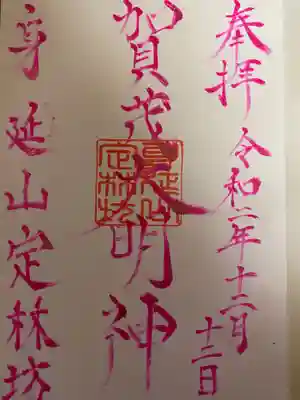 奉拝 令和二年十二月
十二日
賀茂大明神
身延山定林坊
身延山
定林坊